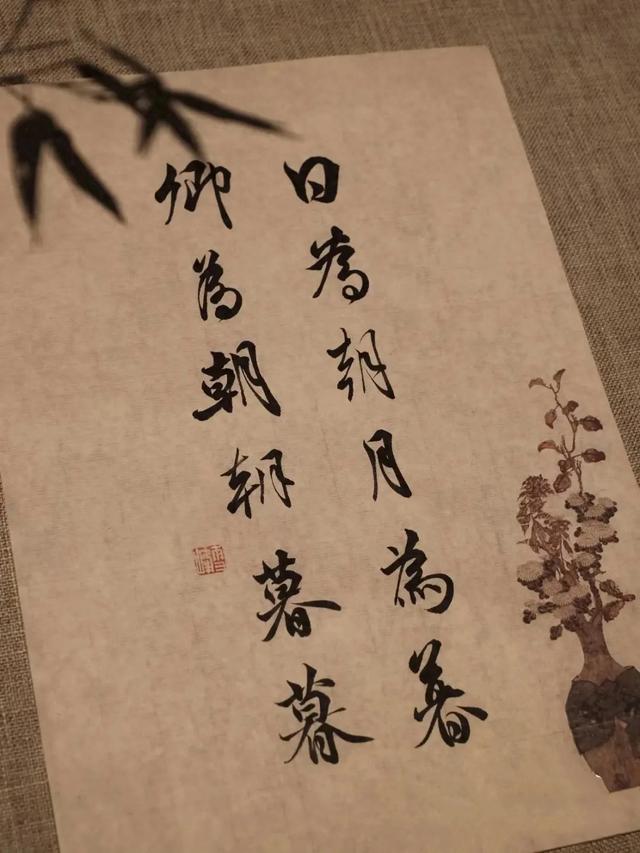 日為朝月為暮
卿為朝朝暮暮